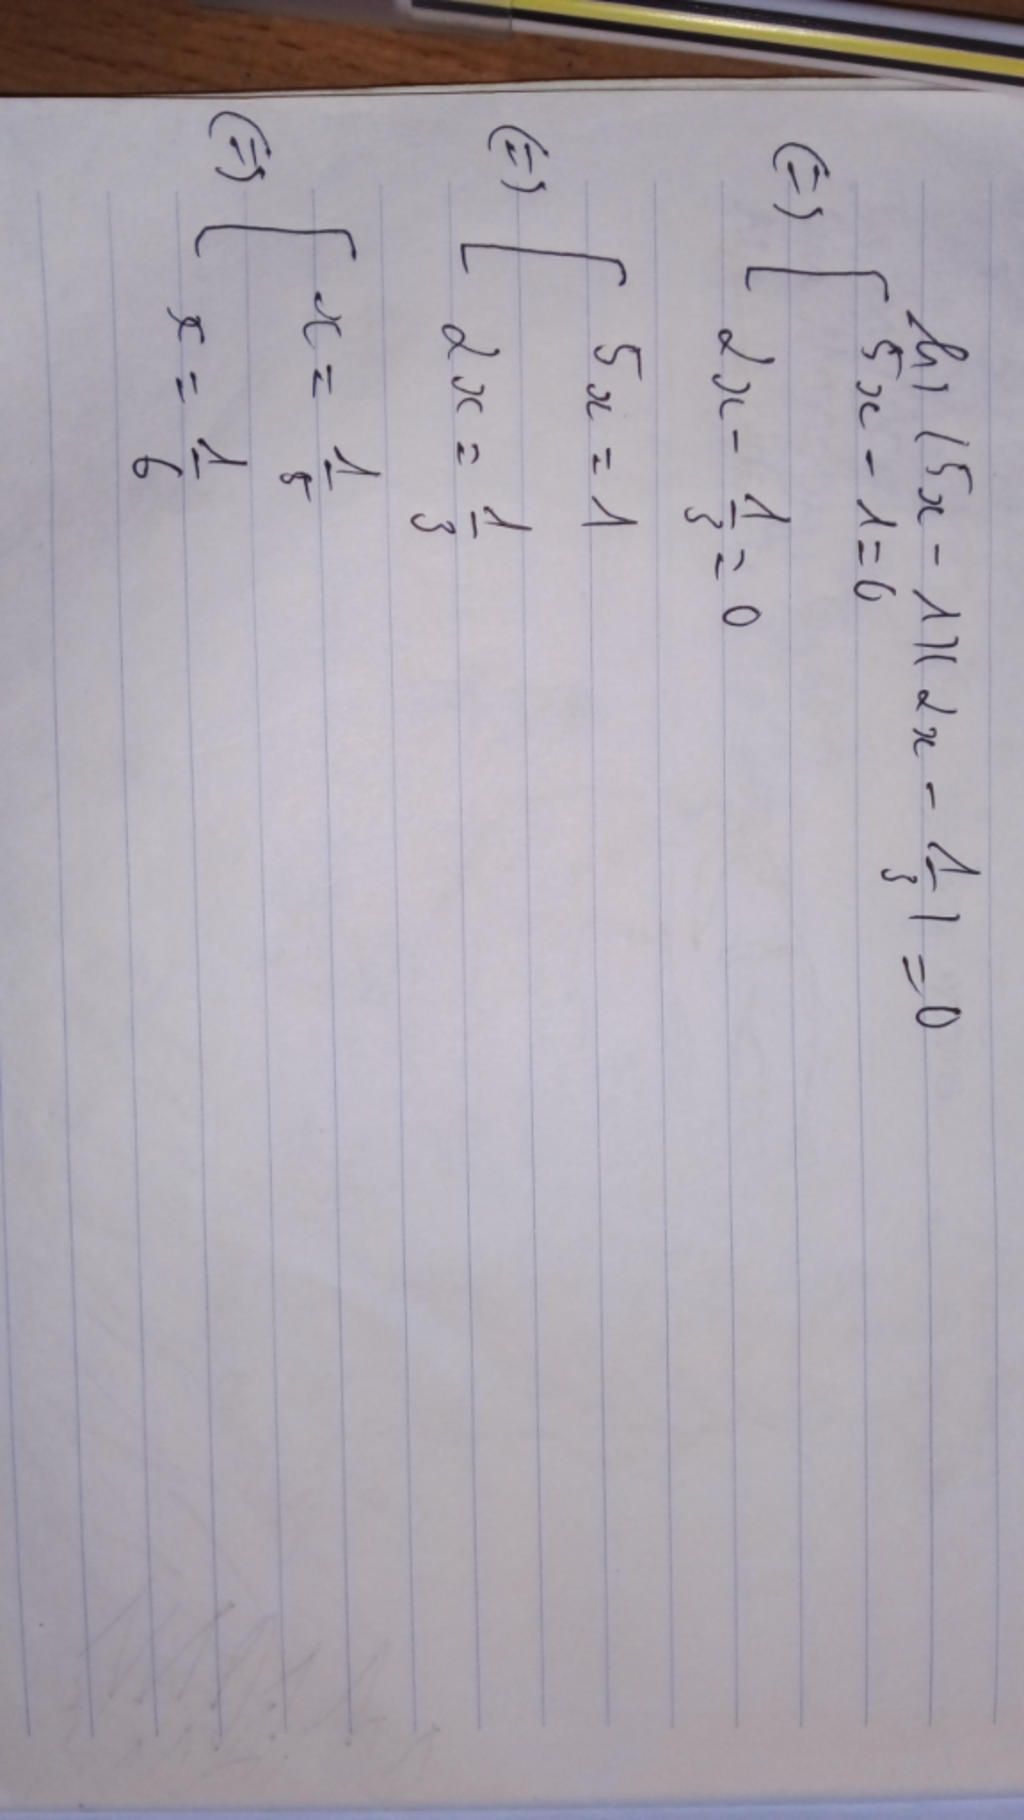 h) (5x - 1)(2x - 1/3) = 0
(=) [ 5x - 1 = 0
2x - 1/3 = 0
(=) [ 5x = 1
2x = 1/3
(=) [ x = 1/5
x = 1/6